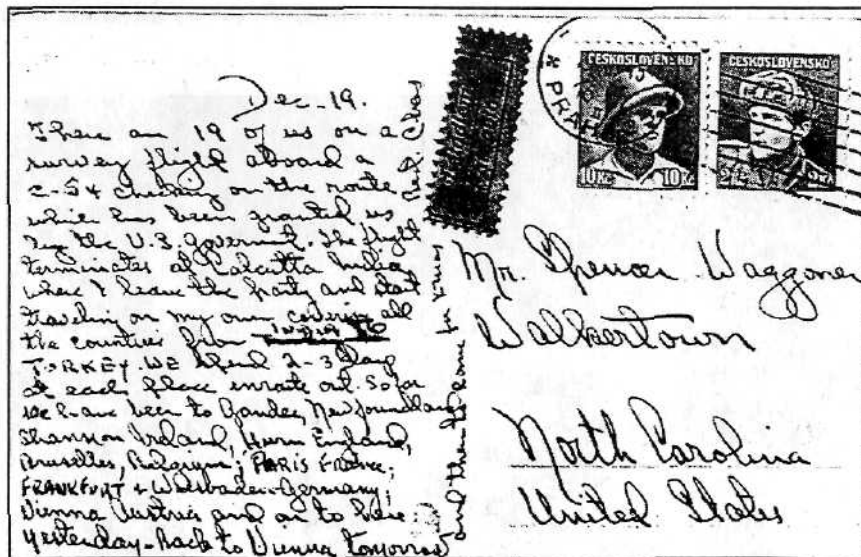 Dec. 19.
There are 19 of us on a
survey flight aboard a
C-54 checking on the route
which has been granted us
by the U.S. Government. The flight
terminates at Calcutta India
where I leave the party and start
traveling on my own covering all
the countries from INDIA to
TURKEY. WE spend 2-3 days
at each place enroute out. So far
we have been to Gander, Newfoundland
Shannon Ireland, Hurn England,
Bruxelles, Belgique; PARIS France.
FRANKFURT + Wiesbaden-Germany,
Vienna Austria and on to here
yesterday-back to Vienna tomorrow
and then to Rome for Xmas
PRAH
ČESKOSLOVENSKO
10 Kčs 10 Kčs
ČESKOSLOVENSKO
2
Mr. Spencer Waggoner
Walkertown
North Carolina
United States